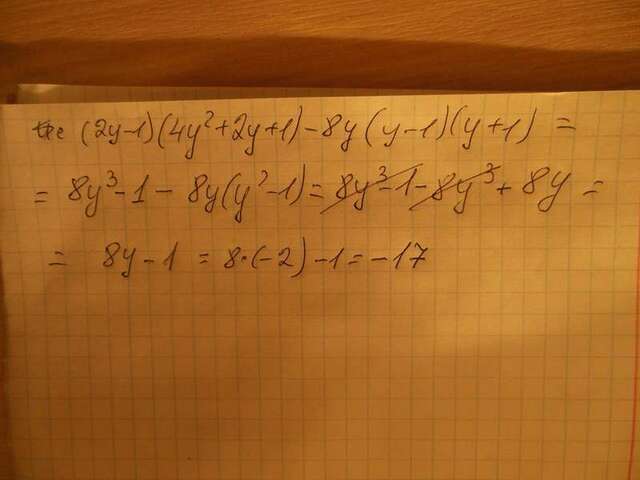 (2y-1)(4y²+2y+1)-8y(y-1)(y+1) =
= 8y³-1-8y(y²-1)= 8y³-1-8y³+8y =
= 8y-1 = 8·(-2)-1=-17